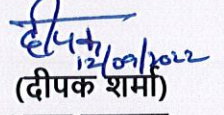 दीपक
12/09/2022
(दीपक शर्मा)